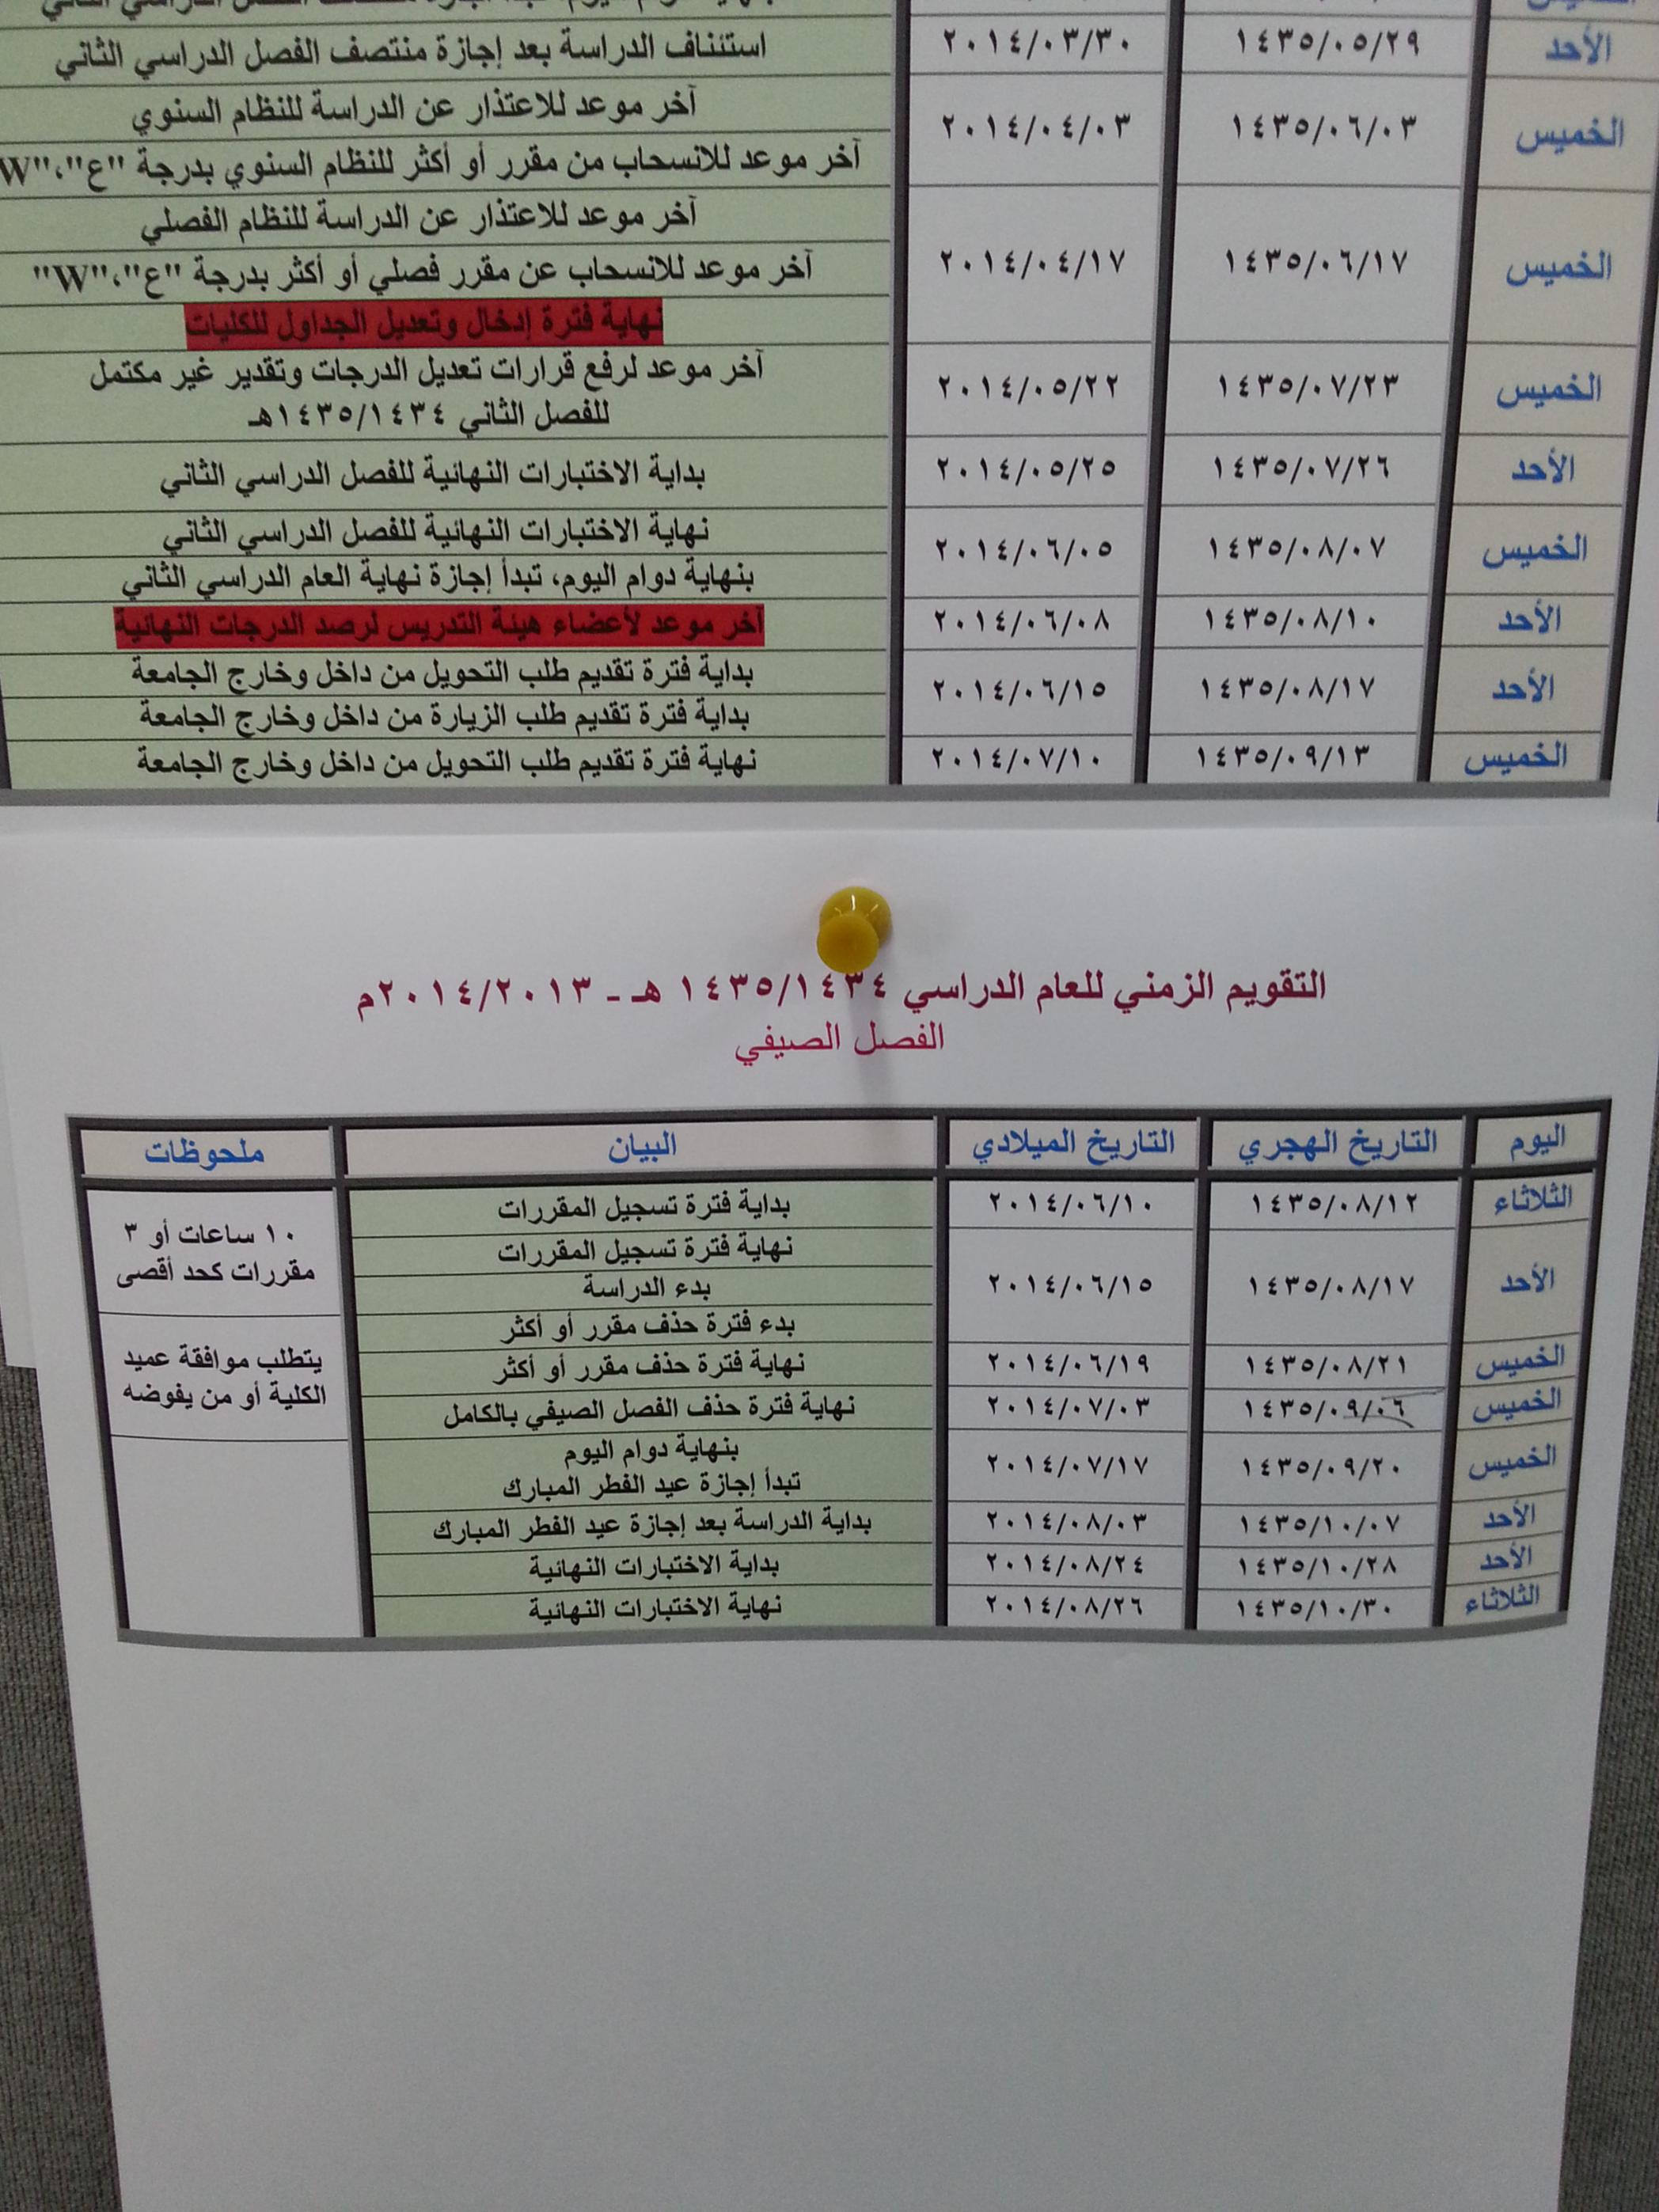 الأحد ١٤٣٥/٠٥/٢٩ ٢٠١٤/٠٣/٣٠ استئناف الدراسة بعد إجازة منتصف الفصل الدراسي الثاني
الخميس ١٤٣٥/٠٦/٠٣ ٢٠١٤/٠٤/٠٣ آخر موعد للاعتذار عن الدراسة للنظام السنوي
آخر موعد للانسحاب من مقرر أو أكثر للنظام السنوي بدرجة "ع"،"W
الخميس ١٤٣٥/٠٦/١٧ ٢٠١٤/٠٤/١٧ آخر موعد للاعتذار عن الدراسة للنظام الفصلي
آخر موعد للانسحاب عن مقرر فصلي أو أكثر بدرجة "ع"،"W"
نهاية فترة إدخال وتعديل الجداول للكليات
الخميس ١٤٣٥/٠٧/٢٣ ٢٠١٤/٠٥/٢٢ آخر موعد لرفع قرارات تعديل الدرجات وتقدير غير مكتمل
للفصل الثاني ١٤٣٥/١٤٣٤هـ
الأحد ١٤٣٥/٠٧/٢٦ ٢٠١٤/٠٥/٢٥ بداية الاختبارات النهائية للفصل الدراسي الثاني
الخميس ١٤٣٥/٠٨/٠٧ ٢٠١٤/٠٦/٠٥ نهاية الاختبارات النهائية للفصل الدراسي الثاني
بنهاية دوام اليوم، تبدأ إجازة نهاية العام الدراسي الثاني
الأحد ١٤٣٥/٠٨/١٠ ٢٠١٤/٠٦/٠٨ آخر موعد لأعضاء هيئة التدريس لرصد الدرجات النهائية
الأحد ١٤٣٥/٠٨/١٧ ٢٠١٤/٠٦/١٥ بداية فترة تقديم طلب التحويل من داخل وخارج الجامعة
بداية فترة تقديم طلب الزيارة من داخل وخارج الجامعة
الخميس ١٤٣٥/٠٩/١٣ ٢٠١٤/٠٧/١٠ نهاية فترة تقديم طلب التحويل من داخل وخارج الجامعة
التقويم الزمني للعام الدراسي ١٤٣٥/١٤٣٤ هـ - ٢٠١٤/٢٠١٣م
الفصل الصيفي
اليوم التاريخ الهجري التاريخ الميلادي البيان ملحوظات
الثلاثاء ١٤٣٥/٠٨/١٢ ٢٠١٤/٠٦/١٠ بداية فترة تسجيل المقررات
١٠ ساعات أو ٣
مقررات كحد أقصى
الأحد ١٤٣٥/٠٨/١٧ ٢٠١٤/٠٦/١٥ نهاية فترة تسجيل المقررات
بدء الدراسة
بدء فترة حذف مقرر أو أكثر
يتطلب موافقة عميد
الكلية أو من يفوضه
الخميس ١٤٣٥/٠٨/٢١ ٢٠١٤/٠٦/١٩ نهاية فترة حذف مقرر أو أكثر
الخميس ١٤٣٥/٠٩/٠٦ ٢٠١٤/٠٧/٠٣ نهاية فترة حذف الفصل الصيفي بالكامل
الخميس ١٤٣٥/٠٩/٢٠ ٢٠١٤/٠٧/١٧ بنهاية دوام اليوم
تبدأ إجازة عيد الفطر المبارك
الأحد ١٤٣٥/١٠/٠٧ ٢٠١٤/٠٨/٠٣ بداية الدراسة بعد إجازة عيد الفطر المبارك
الأحد ١٤٣٥/١٠/٢٨ ٢٠١٤/٠٨/٢٤ بداية الاختبارات النهائية
الثلاثاء ١٤٣٥/١٠/٣٠ ٢٠١٤/٠٨/٢٦ نهاية الاختبارات النهائية